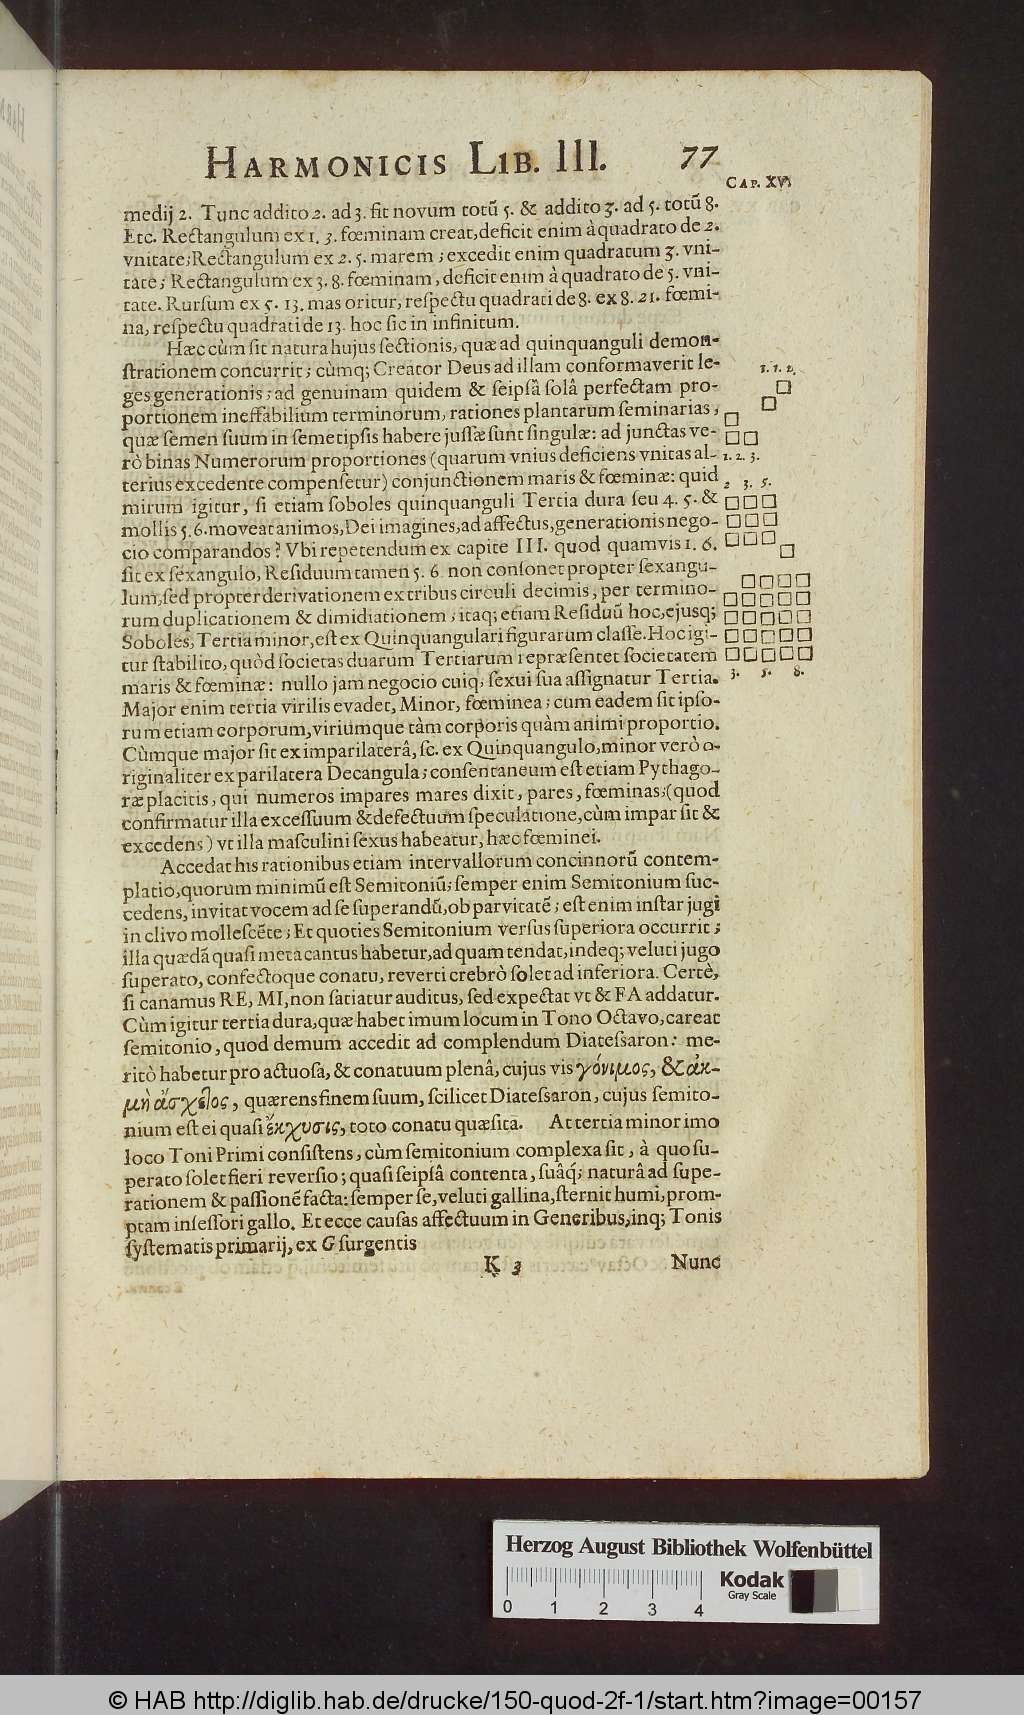 HARMONICIS LIB. III. 77
CAP. XV.
medij 2. Tunc addito 2. ad 3. fit novum totũ 5. & addito 3. ad 5. totũ 8.
Etc. Rectangulum ex 1. 3. fœminam creat, deficit enim à quadrato de 2.
vnitate; Rectangulum ex 2. 5. marem; excedit enim quadratum 3. vni-
tate; Rectangulum ex 3. 8. fœminam, deficit enim à quadrato de 5. vni-
tate. Rursum ex 5. 13. mas oritur, respectu quadrati de 8. ex 8. 21. fœmi-
na, respectu quadrati de 13. hoc sic in infinitum.
Hæc cùm sit natura hujus sectionis, quæ ad quinquanguli demon-
strationem concurrit; cùmq; Creator Deus ad illam conformaverit le-
ges generationis; ad genuinam quidem & seipsâ solâ perfectam pro-
portionem ineffabilium terminorum, rationes plantarum seminarias,
quæ semen suum in semetipsis habere jussæ sunt singulæ: ad junctas ve-
rò binas Numerorum proportiones (quarum vnius deficiens vnitas al-
terius excedente compensetur) conjunctionem maris & fœminæ: quid
mirum igitur, si etiam soboles quinquanguli Tertia dura seu 4. 5. &
mollis 5. 6. moveat animos, Dei imagines, ad affectus, generationis nego-
cio comparandos? Vbi repetendum ex capite III. quod quamvis 1. 6.
sit ex sexangulo, Residuum tamen 5. 6 non consonet propter sexangu-
lum, sed propter derivationem ex tribus circuli decimis, per termino-
rum duplicationem & dimidiationem; itaq; etiam Residuũ hoc, ejusq;
Soboles, Tertia minor, est ex Quinquangulari figurarum classe. Hoc igi-
tur stabilito, quòd societas duarum Tertiarum repræsentet societatem
maris & fœminæ: nullo jam negocio cuiq; sexui sua assignatur Tertia.
Major enim tertia virilis evadet, Minor, fœminea; cum eadem sit ipso-
rum etiam corporum, viriumque tàm corporis quàm animi proportio.
Cùmque major sit ex imparilaterâ, sc. ex Quinquangulo, minor verò o-
riginaliter ex parilatera Decangula; consentaneum est etiam Pythago-
ræ placitis, qui numeros impares mares dixit, pares, fœminas; (quod
confirmatur illa excessuum & defectuum speculatione, cùm impar sit &
excedens) vt illa masculini sexus habeatur, hæc fœminei.
Accedat his rationibus etiam intervallorum concinnorũ contem-
platio, quorum minimũ est Semitoniũ; semper enim Semitonium suc-
cedens, invitat vocem ad se superandũ, ob parvitatẽ; est enim instar jugi
in clivo mollescẽte; Et quoties Semitonium versus superiora occurrit;
illa quædã quasi meta cantus habetur, ad quam tendat, indeq; veluti jugo
superato, confectoque conatu, reverti crebrò solet ad inferiora. Certè,
si canamus RE, MI, non satiatur auditus, sed expectat vt & FA addatur.
Cùm igitur tertia dura, quæ habet imum locum in Tono Octavo, careat
semitonio, quod demum accedit ad complendum Diatessaron: me-
ritò habetur pro actuosa, & conatuum plenâ, cujus vis γόνιμος, & ἀκ-
μὴ ἄσχετος, quærens finem suum, scilicet Diatessaron, cujus semito-
nium est ei quasi ἔκχυσις, toto conatu quæsita. At tertia minor imo
loco Toni Primi consistens, cùm semitonium complexa sit, à quo su-
perato solet fieri reversio; quasi seipsâ contenta, suâq; naturâ ad supe-
rationem & passionẽ facta: semper se, veluti gallina, sternit humi, prom-
ptam insessori gallo. Et ecce causas affectuum in Generibus, inq; Tonis
systematis primarij, ex G surgentis
K 3 Nunc
1. 1. 2.
1. 2. 3.
2 3. 5.
3. 5. 8.
Herzog August Bibliothek Wolfenbüttel
Kodak
Gray Scale
0 1 2 3 4
© HAB http://diglib.hab.de/drucke/150-quod-2f-1/start.htm?image=00157